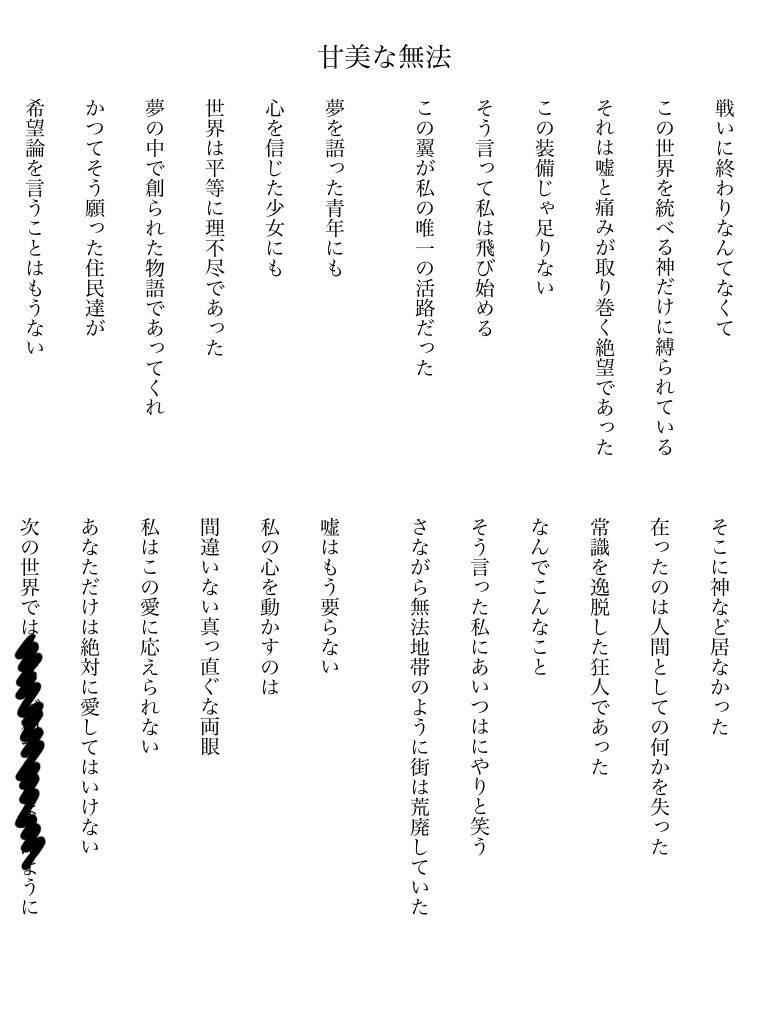 甘美な無法
戦いに終わりなんてなくて
この世界を統べる神だけに縛られている
それは嘘と痛みが取り巻く絶望であった
この装備じゃ足りない
そう言って私は飛び始める
この翼が私の唯一の活路だった
夢を語った青年にも
心を信じた少女にも
世界は平等に理不尽であった
夢の中で創られた物語であってくれ
かつてそう願った住民達が
希望論を言うことはもうない
そこに神など居なかった
在ったのは人間としての何かを失った
常識を逸脱した狂人であった
なんでこんなこと
そう言った私にあいつはにやりと笑う
さながら無法地帯のように街は荒廃していた
嘘はもう要らない
私の心を動かすのは
間違いない真っ直ぐな両眼
私はこの愛に応えられない
あなただけは絶対に愛してはいけない
次の世界では ように